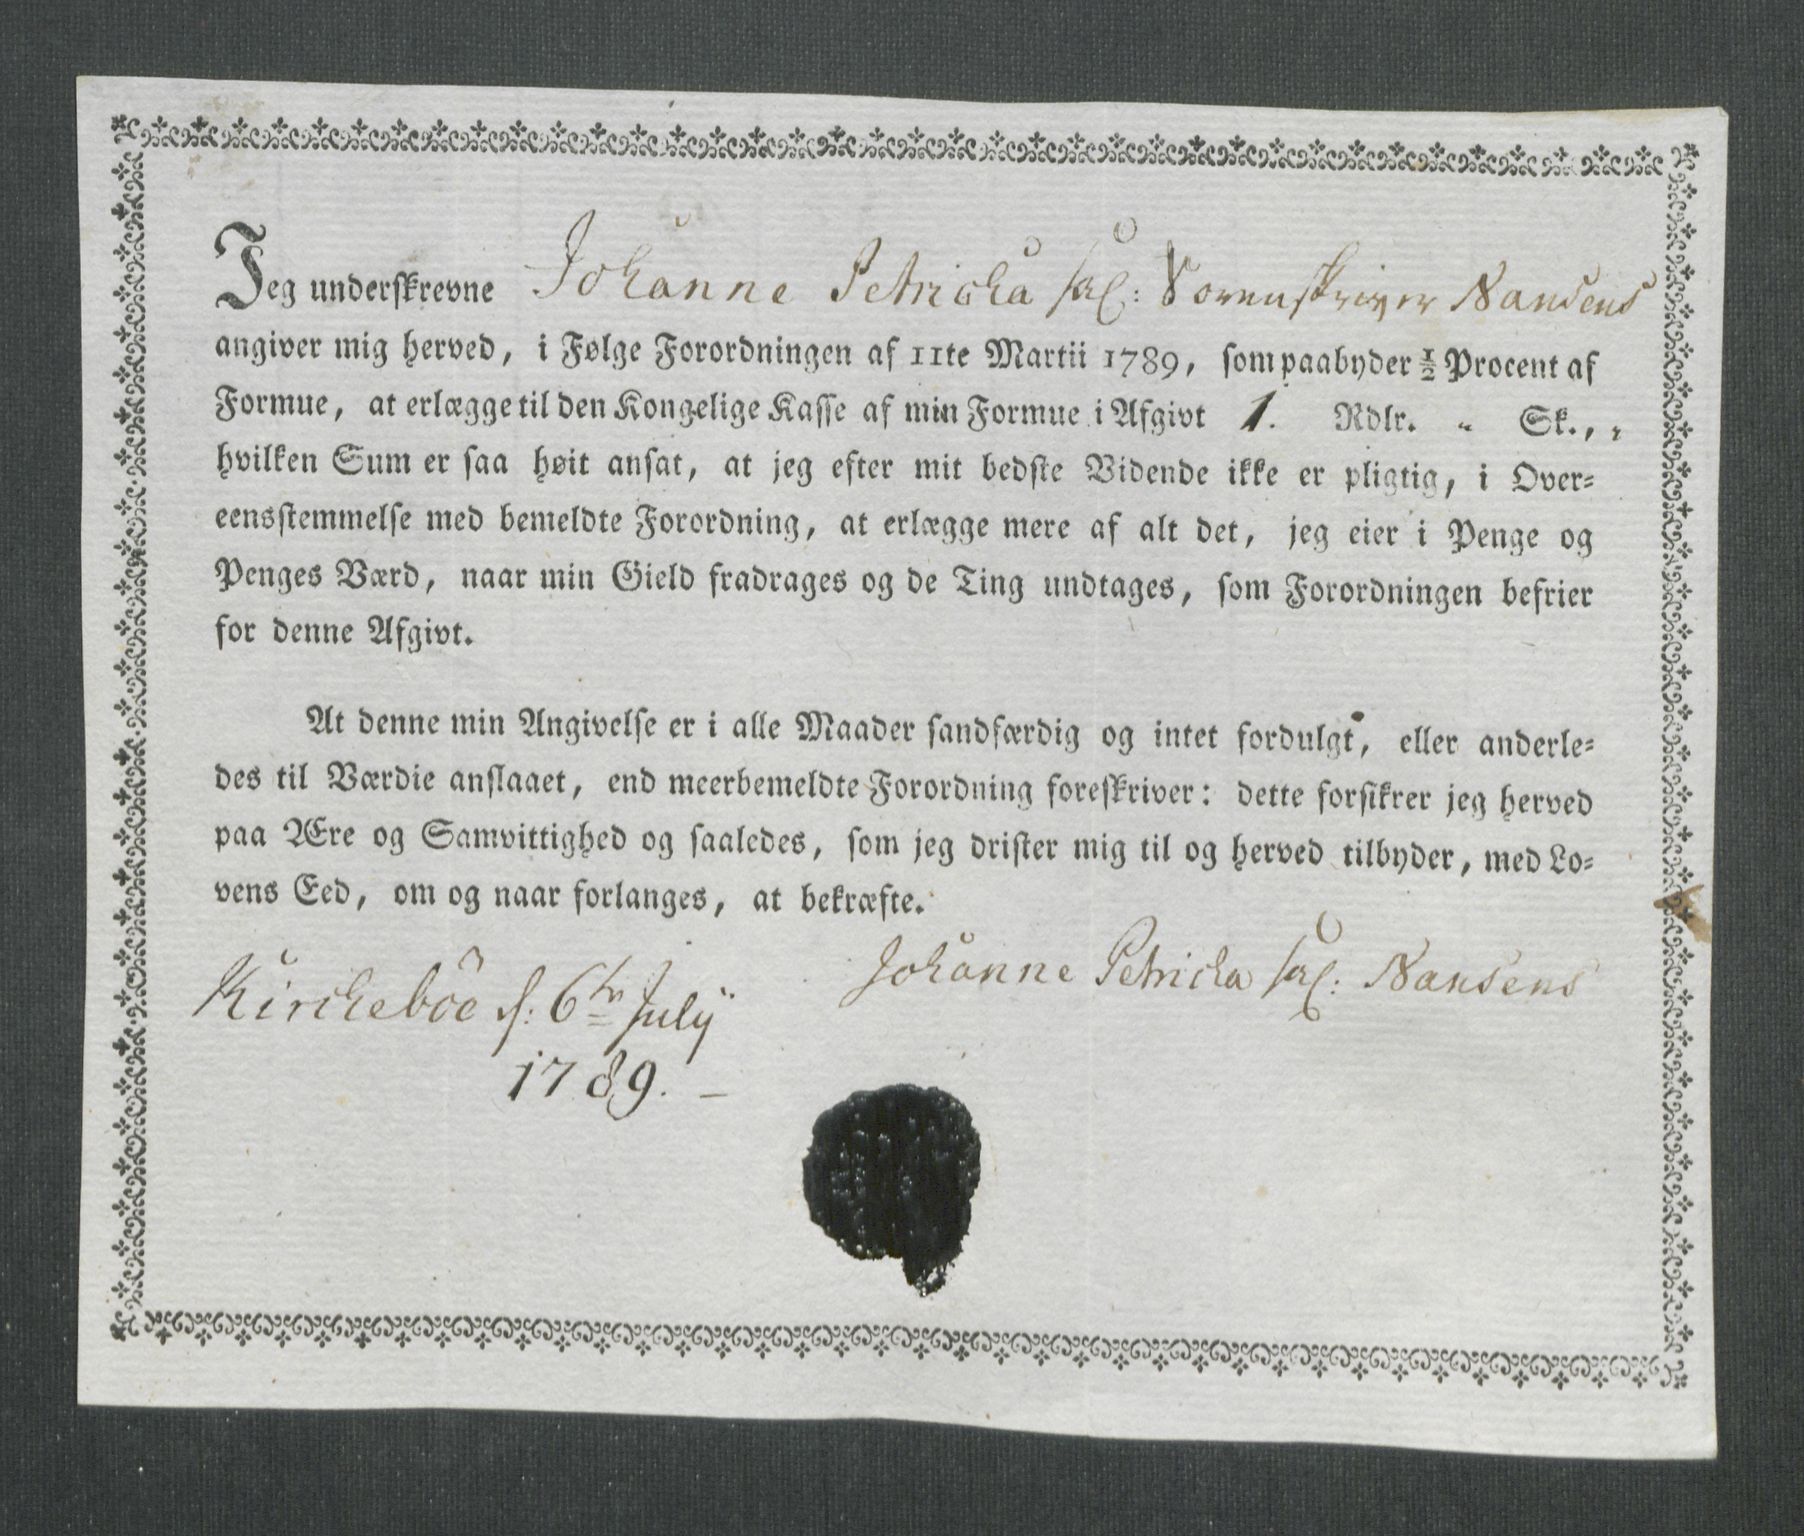 Jeg underskrevne Johanne Petricha sal: Sorenskriver Nansens
angiver mig herved, i Følge Forordningen af 11te Martii 1789, som paabyder ½ Procent af
Formue, at erlægge til den Kongelige Kasse af min Formue i Afgivt 1. Rdlr. " Sk., ,
hvilken Sum er saa høit ansat, at jeg efter mit bedste Vidende ikke er pligtig, i Over=
eensstemmelse med bemeldte Forordning, at erlægge mere af alt det, jeg eier i Penge og
Penges Værd, naar min Gield fradrages og de Ting undtages, som Forordningen befrier
for denne Afgivt.
At denne min Angivelse er i alle Maader sandfærdig og intet fordulgt, eller anderle=
des til Værdie anslaaet, end meerbemeldte Forordning foreskriver: dette forsikrer jeg herved
paa Ære og Samvittighed og saaledes, som jeg drister mig til og herved tilbyder, med Lo=
vens Eed, om og naar forlanges, at bekræfte.
Johanne Petricha sal: Nansens
Kircheböe d: 6te July
1789. –